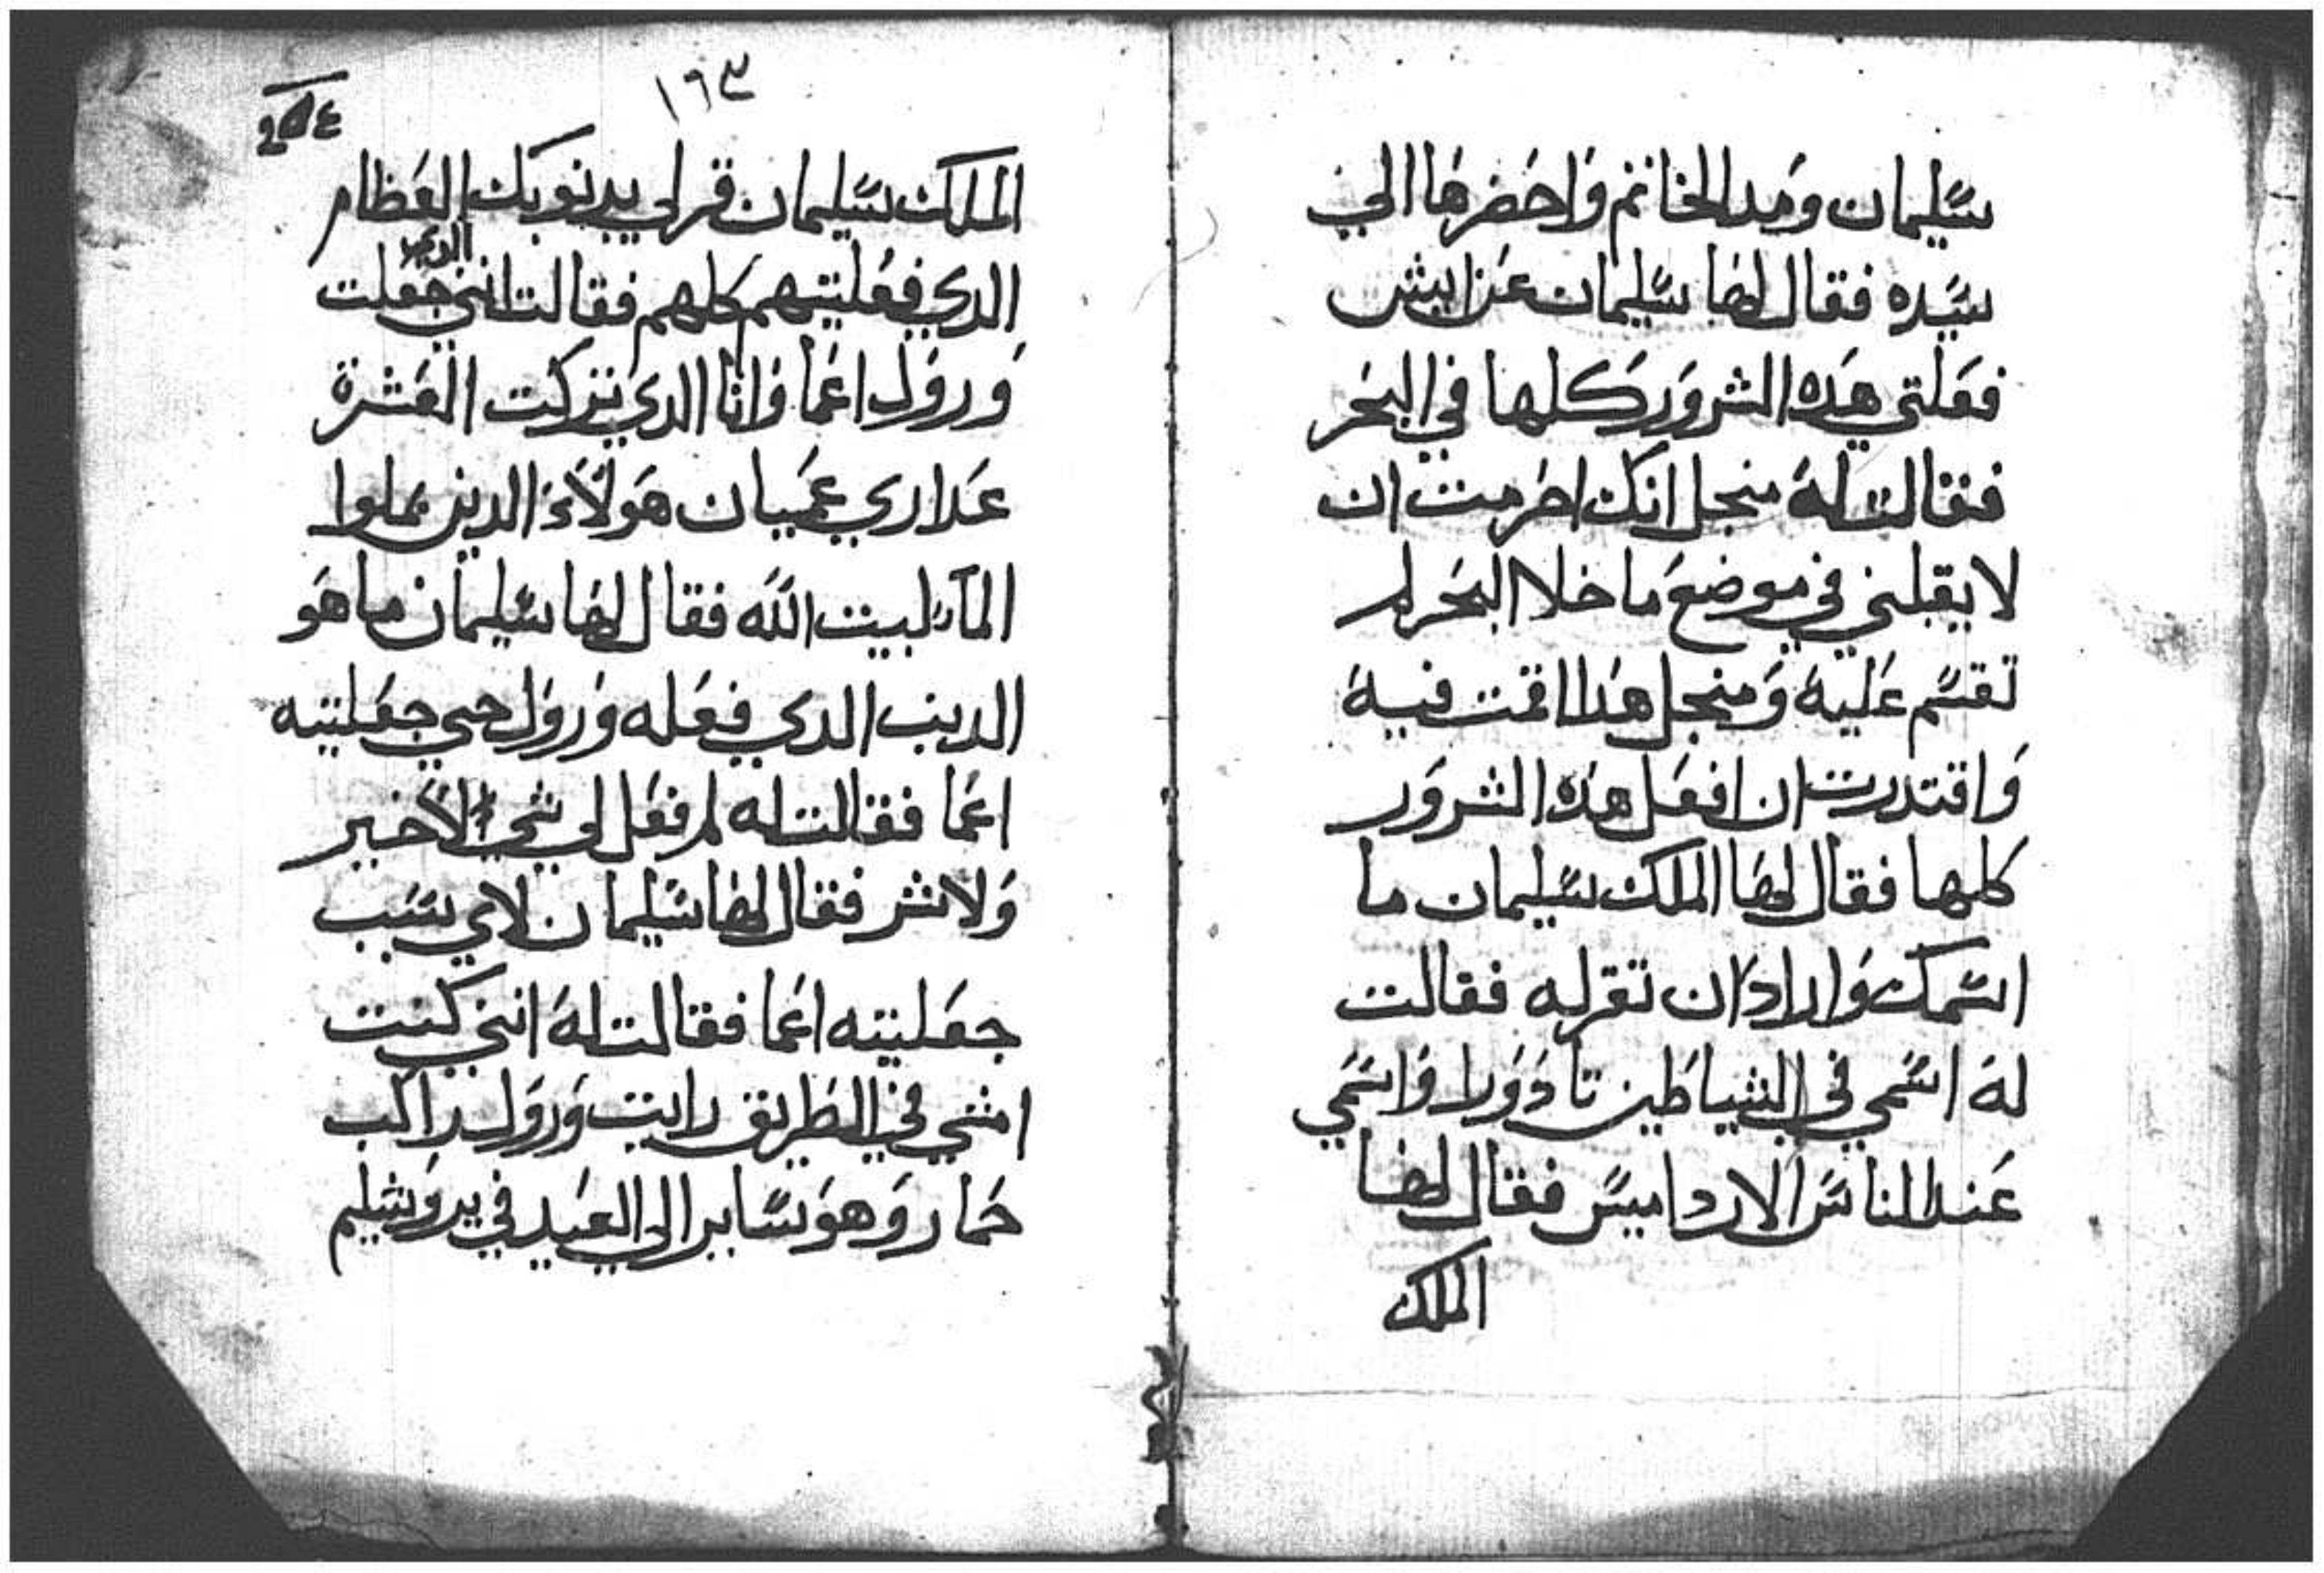 سليمان ومد الخاتم واحضرها الي
سيده فقال لها سليمان عن ايش
فعلتي هده الشرور كلها في البحر
فقالت له منجل انك احرمت ان
لا يقبلني في موضع ما خلا البحر لم
تقسم عليه ومنجل هدا اقمت فيه
واقتدرت ان افعل هده الشرور
كلها فقال لها الملك سليمان ما
اسمك واراد ان تقر له فقالت
له اسمي في الشياطين تادورا واسمي
عند الناس الارداميس فقال لها
الملك
١٦٣
الملك سليمان قر لي بدنوبك العظام
الدي فعلتيهم كلهم فقالت انني الدي جعلت
ورول اعما وانا الدي تركت العشرة
عداري عميان هولاء الدين يملوا
الما لبيت الله فقال لها سليمان ما هو
الدنب الدي فعله ورول حي جعلتيه
اعما فقالت له لم فعل لي شي لا خير
ولا شر فقال لها سليمان لاي سبب
جعلتيه اعما فقالت له انني كنت
امشي في الطريق رايت ورول راكب
حمار وهو ساير الي العيد في يروشليم